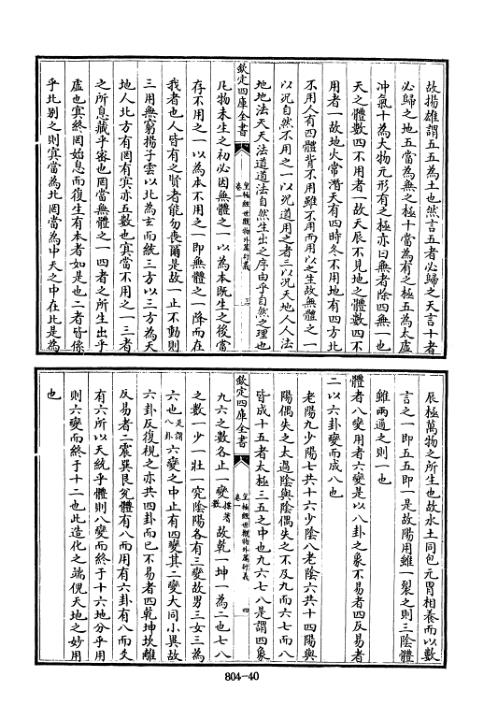 故揚雄謂五五為土也然言五者必歸之天言十者
必歸之地五當為無之極十當為有之極五為太虛
冲氣十為大物元形有之極亦曰無者除四無一也
天之體數四不用者一故天辰不見地之體數四不
用者一故地火常潛天有四時冬不用地有四方北
不用人有四體背不用雖不用而用以之生故無體之一
以况自然不用之一以况道用之者三以况天地人人法
地地法天天法道道法自然生出之序由乎自然之理也
欽定四庫全書
皇極經世觀物外篇衍義
卷一
三
凡物未生之初必因無體之一以為本既生之後當
存不用之一以為本不用之一即無體之一降而在
我者也人皆有之賢者能勿喪爾是故一止不動則
三用無窮揚子雲以北為玄而統三方以三方為天
地人北方有罔有冥亦五數也冥當不用之一三者
之所息藏乎審也罔當無體之一四者之所生出乎
虛也冥終罔始息而復生有本者如是也二者皆係
乎北别之則冥當為北罔當為中天之中在北是為
辰極萬物之所生也故水土同包元胃相養而以數
言之一即五五即一是故陽用雖一裂之則三陰體
雖兩通之則一也
體者八變用者六變是以八卦之象不易者四反易者
二以六卦變而成八也
老陽九少陽七共十六少陰八老陰六共十四陽與
陽偶失之太過陰與陰偶失之不及九而六七而八
皆成十五者太極三五之中也九六七八是謂四象
欽定四庫全書
皇極經世觀物外篇衍義
卷一
四
九六之數各止一變揲蓍數故乾一坤一為二也七八
之數一少一壯一究陰陽各有三變故男三女三為
六也是謂八卦六變之中止有四變其二變大同小異故
六卦反復視之亦共四卦而已不易者四乾坤坎離
反易者二震巽艮兌體有八而用有六卦有八而爻
有六所以天統乎體則八變而終于十六地分乎用
則六變而終于十二也此造化之端倪天地之妙用
也
804-40